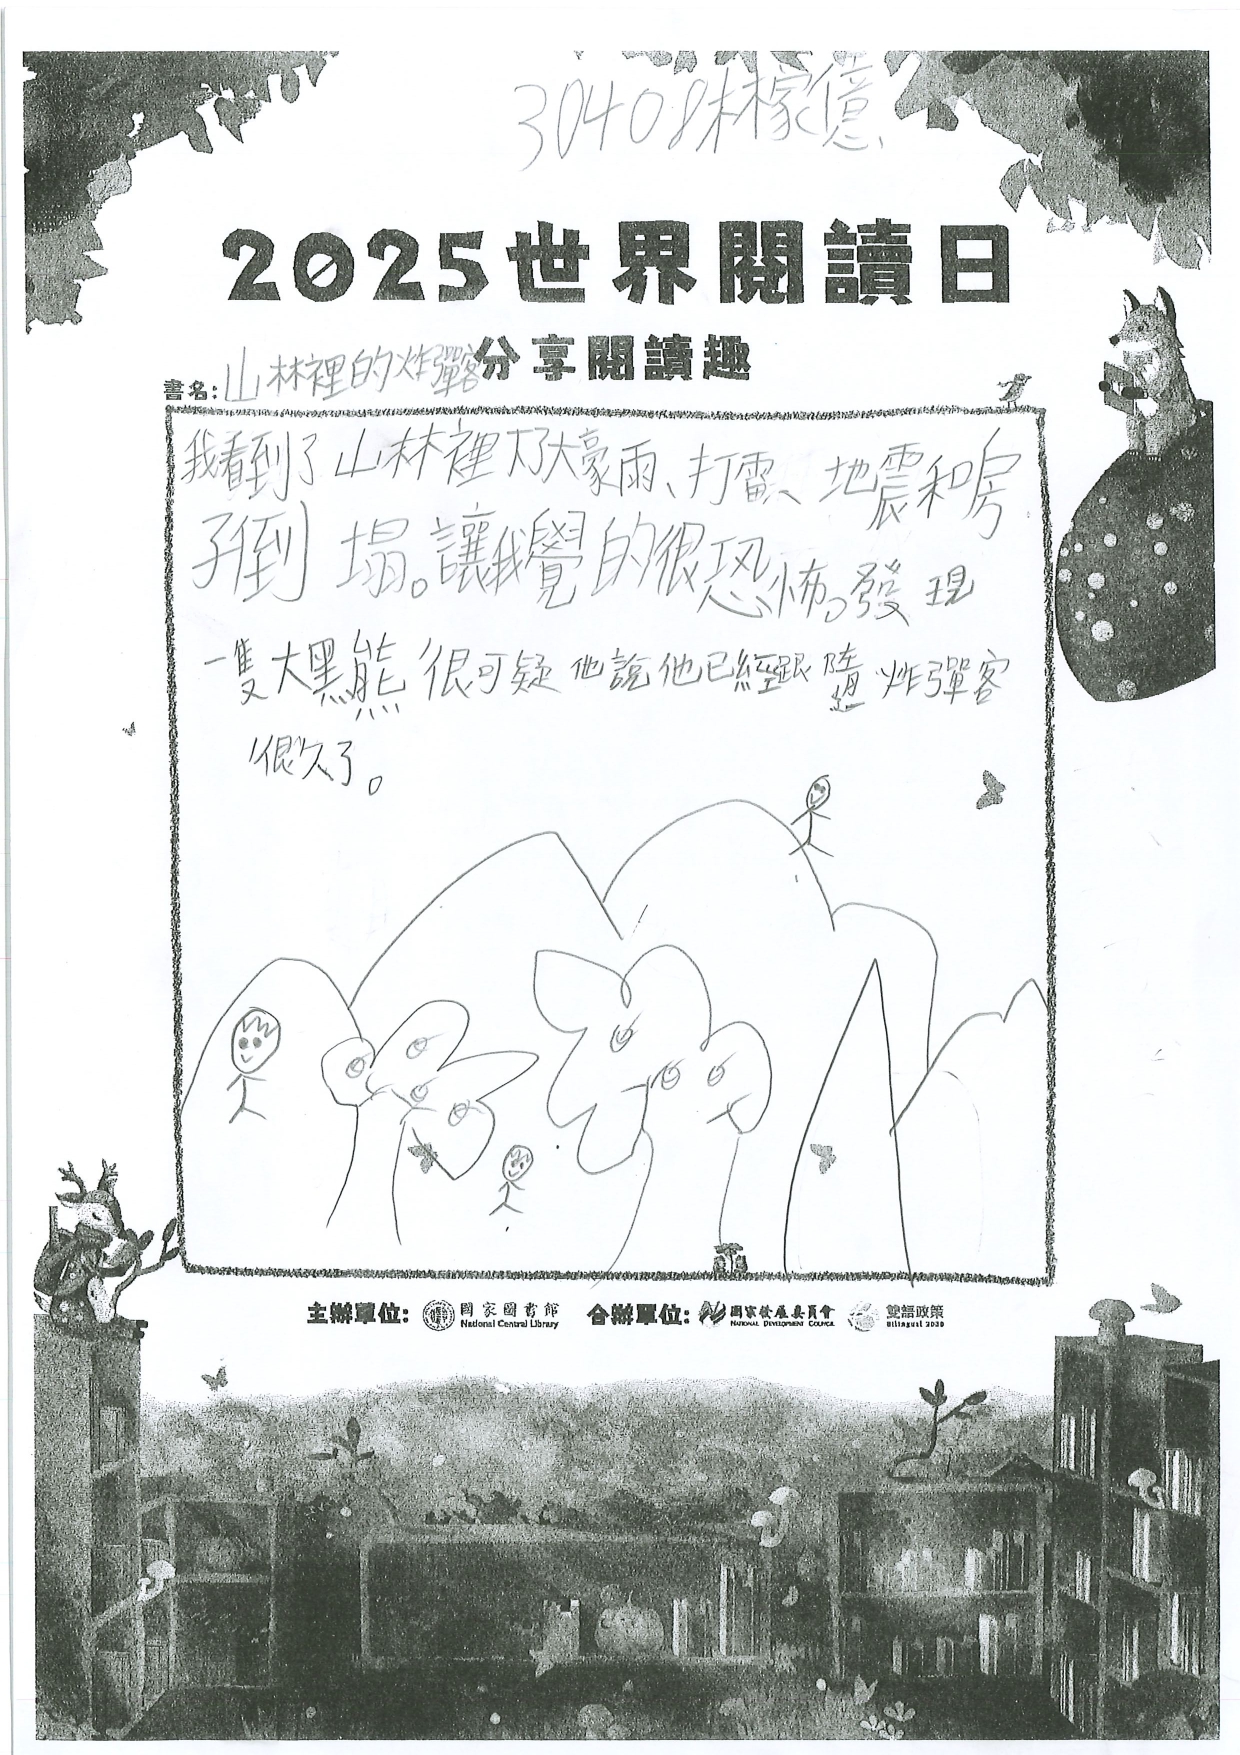 30408林稼億
2025世界閱讀日
分享閱讀趣
書名:山林裡的炸彈客
我看到了山林裡大豪雨、打雷、地震和房
子倒塌。讓我覺的很恐怖。發現
一隻大黑熊很可疑他說他已經跟 炸彈客
很久了。
主辦單位: 國家圖書館 National Central Library 合辦單位: 國家發展委員會 NATIONAL DEVELOPMENT COUNCIL 雙語政策 Bilingual 2030